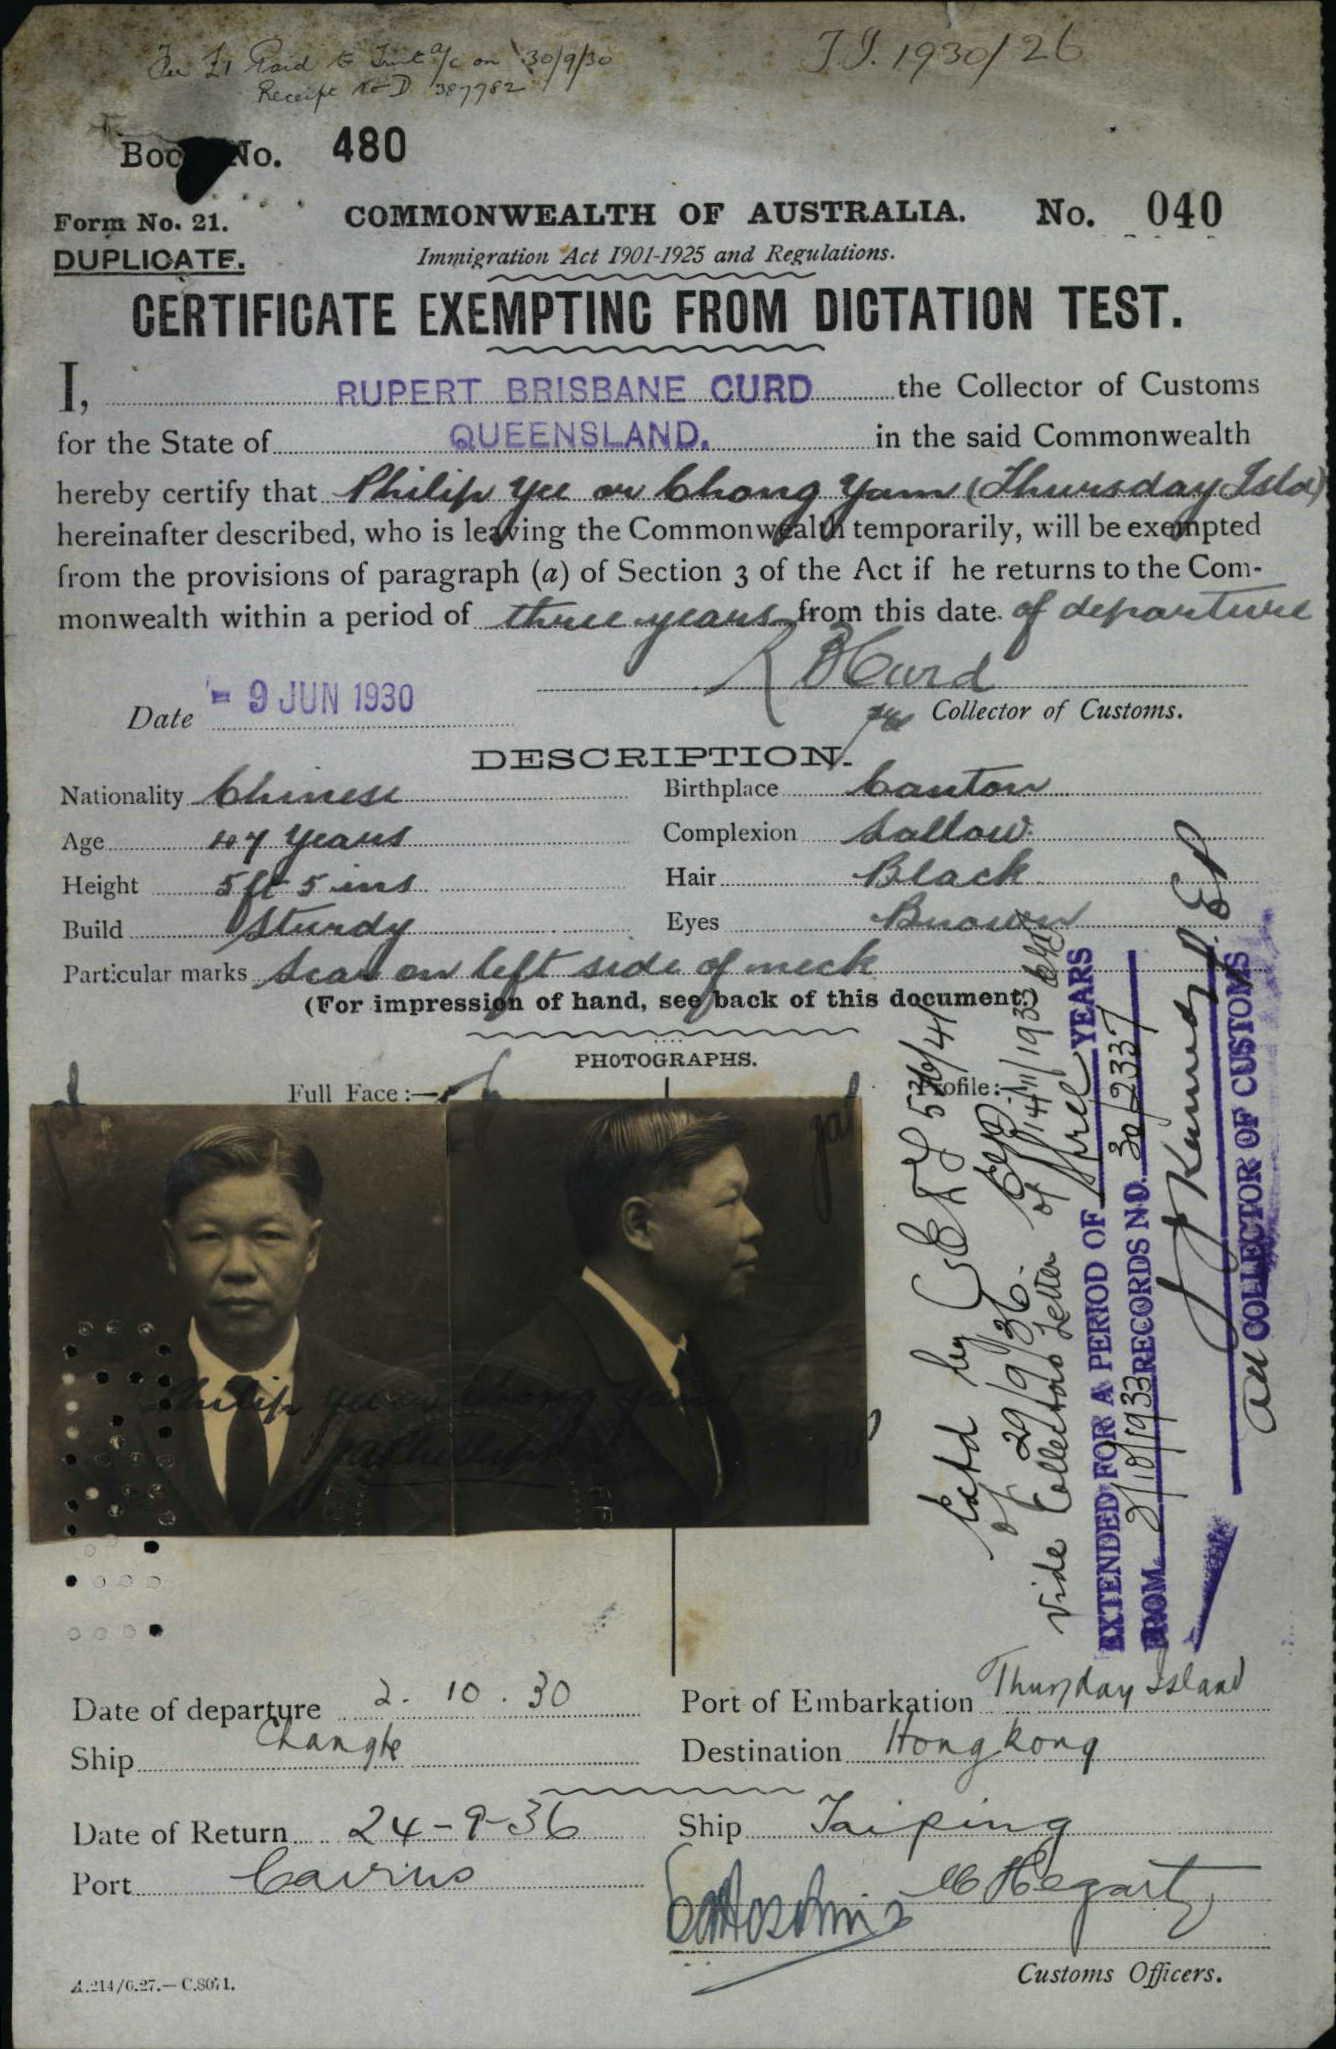 Fee £1 Paid to Trust a/c on 30/9/30
Receipt No D 387782
T.I. 1930/26
Book No. 480
Form No. 21.
COMMONWEALTH OF AUSTRALIA.
No. 040
DUPLICATE.
Immigration Act 1901-1925 and Regulations.
CERTIFICATE EXEMPTING FROM DICTATION TEST.
I, RUPERT BRISBANE CURD the Collector of Customs
for the State of QUEENSLAND. in the said Commonwealth
hereby certify that Philip Yee or Chong Yam (Thursday Isld)
hereinafter described, who is leaving the Commonwealth temporarily, will be exempted
from the provisions of paragraph (a) of Section 3 of the Act if he returns to the Com-
monwealth within a period of three years from this date of departure
R B Curd
Date - 9 JUN 1930
Collector of Customs.
DESCRIPTION.
Nationality Chinese
Birthplace Canton
Age 47 years
Complexion Sallow
Height 5 ft 5 ins
Hair Black
Build Sturdy
Eyes Brown
Particular marks Scar on left side of neck
(For impression of hand, see back of this document.)
PHOTOGRAPHS.
Full Face:—
Profile:—
Philip Yee or Chong Yam
of 29/9/36.
Vide Collectors Letter of 14/11/1933
EXTENDED FOR A PERIOD OF three YEARS
FROM 2/10/1933 RECORDS NO. 30/2337
J Kennedy
COLLECTOR OF CUSTOMS
Date of departure 2. 10. 30
Port of Embarkation Thursday Island
Ship Changte
Destination Hong Kong
Date of Return 24-9-36
Ship Taiping
Port Cairns
Hegarty
Customs Officers.
A.214/6.27.—C.8071.